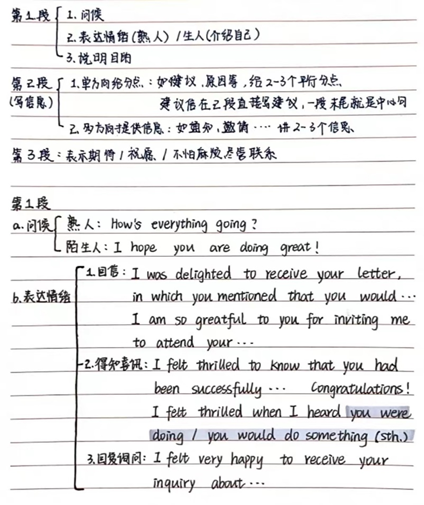 第1段 1. 问候
2. 表达情绪(熟人) / 生人(介绍自己)
3. 说明目的
第2段 1. 单方向给分点:如建议、原因等,给2-3个平行分点
(写信息) 建议信在2段直接写建议,一段末尾就是中心句
2. 多方向提供信息:如通知,邀请···· 讲2-3个信息
第3段:表示期待 / 祝愿 / 不怕麻烦尽管联系
第1段
a.问候 熟人: How's everything going?
陌生人: I hope you are doing great!
b.表达情绪 1.回答: I was delighted to receive your letter,
in which you mentioned that you would ···
I am so greatful to you for inviting me
to attend your ···
2.得知喜讯: I felt thrilled to know that you had
been successfully ··· Congratulations!
I felt thrilled when I heard you were
doing / you would do something (sth.)
3.回复询问: I felt very happy to receive your
inquiry about ···